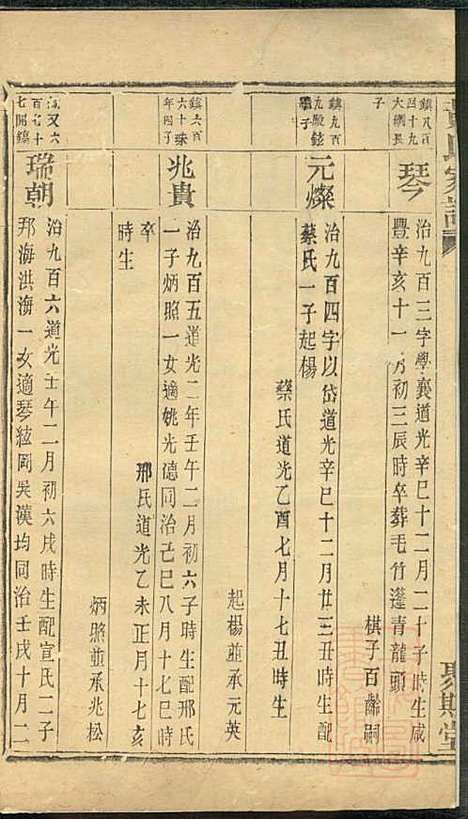 氏家譜
聚斯堂
鎮八百
四十九
大網長
子
琴
治九百三字學襄道光辛巳十二月二十子時生咸
豐辛亥十一月初三辰時卒葬毛竹蓬青龍頭
棋子百齡嗣
鎮九百
九殿鉉
子
元燦
治九百四字以岱道光辛巳十二月廿三丑時生配
蔡氏一子起楊
蔡氏道光乙酉七月十七丑時生
起楊並承元英
鎮六百
六十
年四子
兆貴
治九百五道光二年壬午二月初六子時生配邢氏
一子炳照一女適姚光德同治己巳八月十七巳時
卒
邢氏道光乙未正月十七亥
時生
炳照並承兆松
又六
百七十
七開鎮
瑞朝
治九百六道光壬午二月初六戌時生配宣氏二子
邦海洪海一女適琴絃岡吳漢均同治壬戌十月二